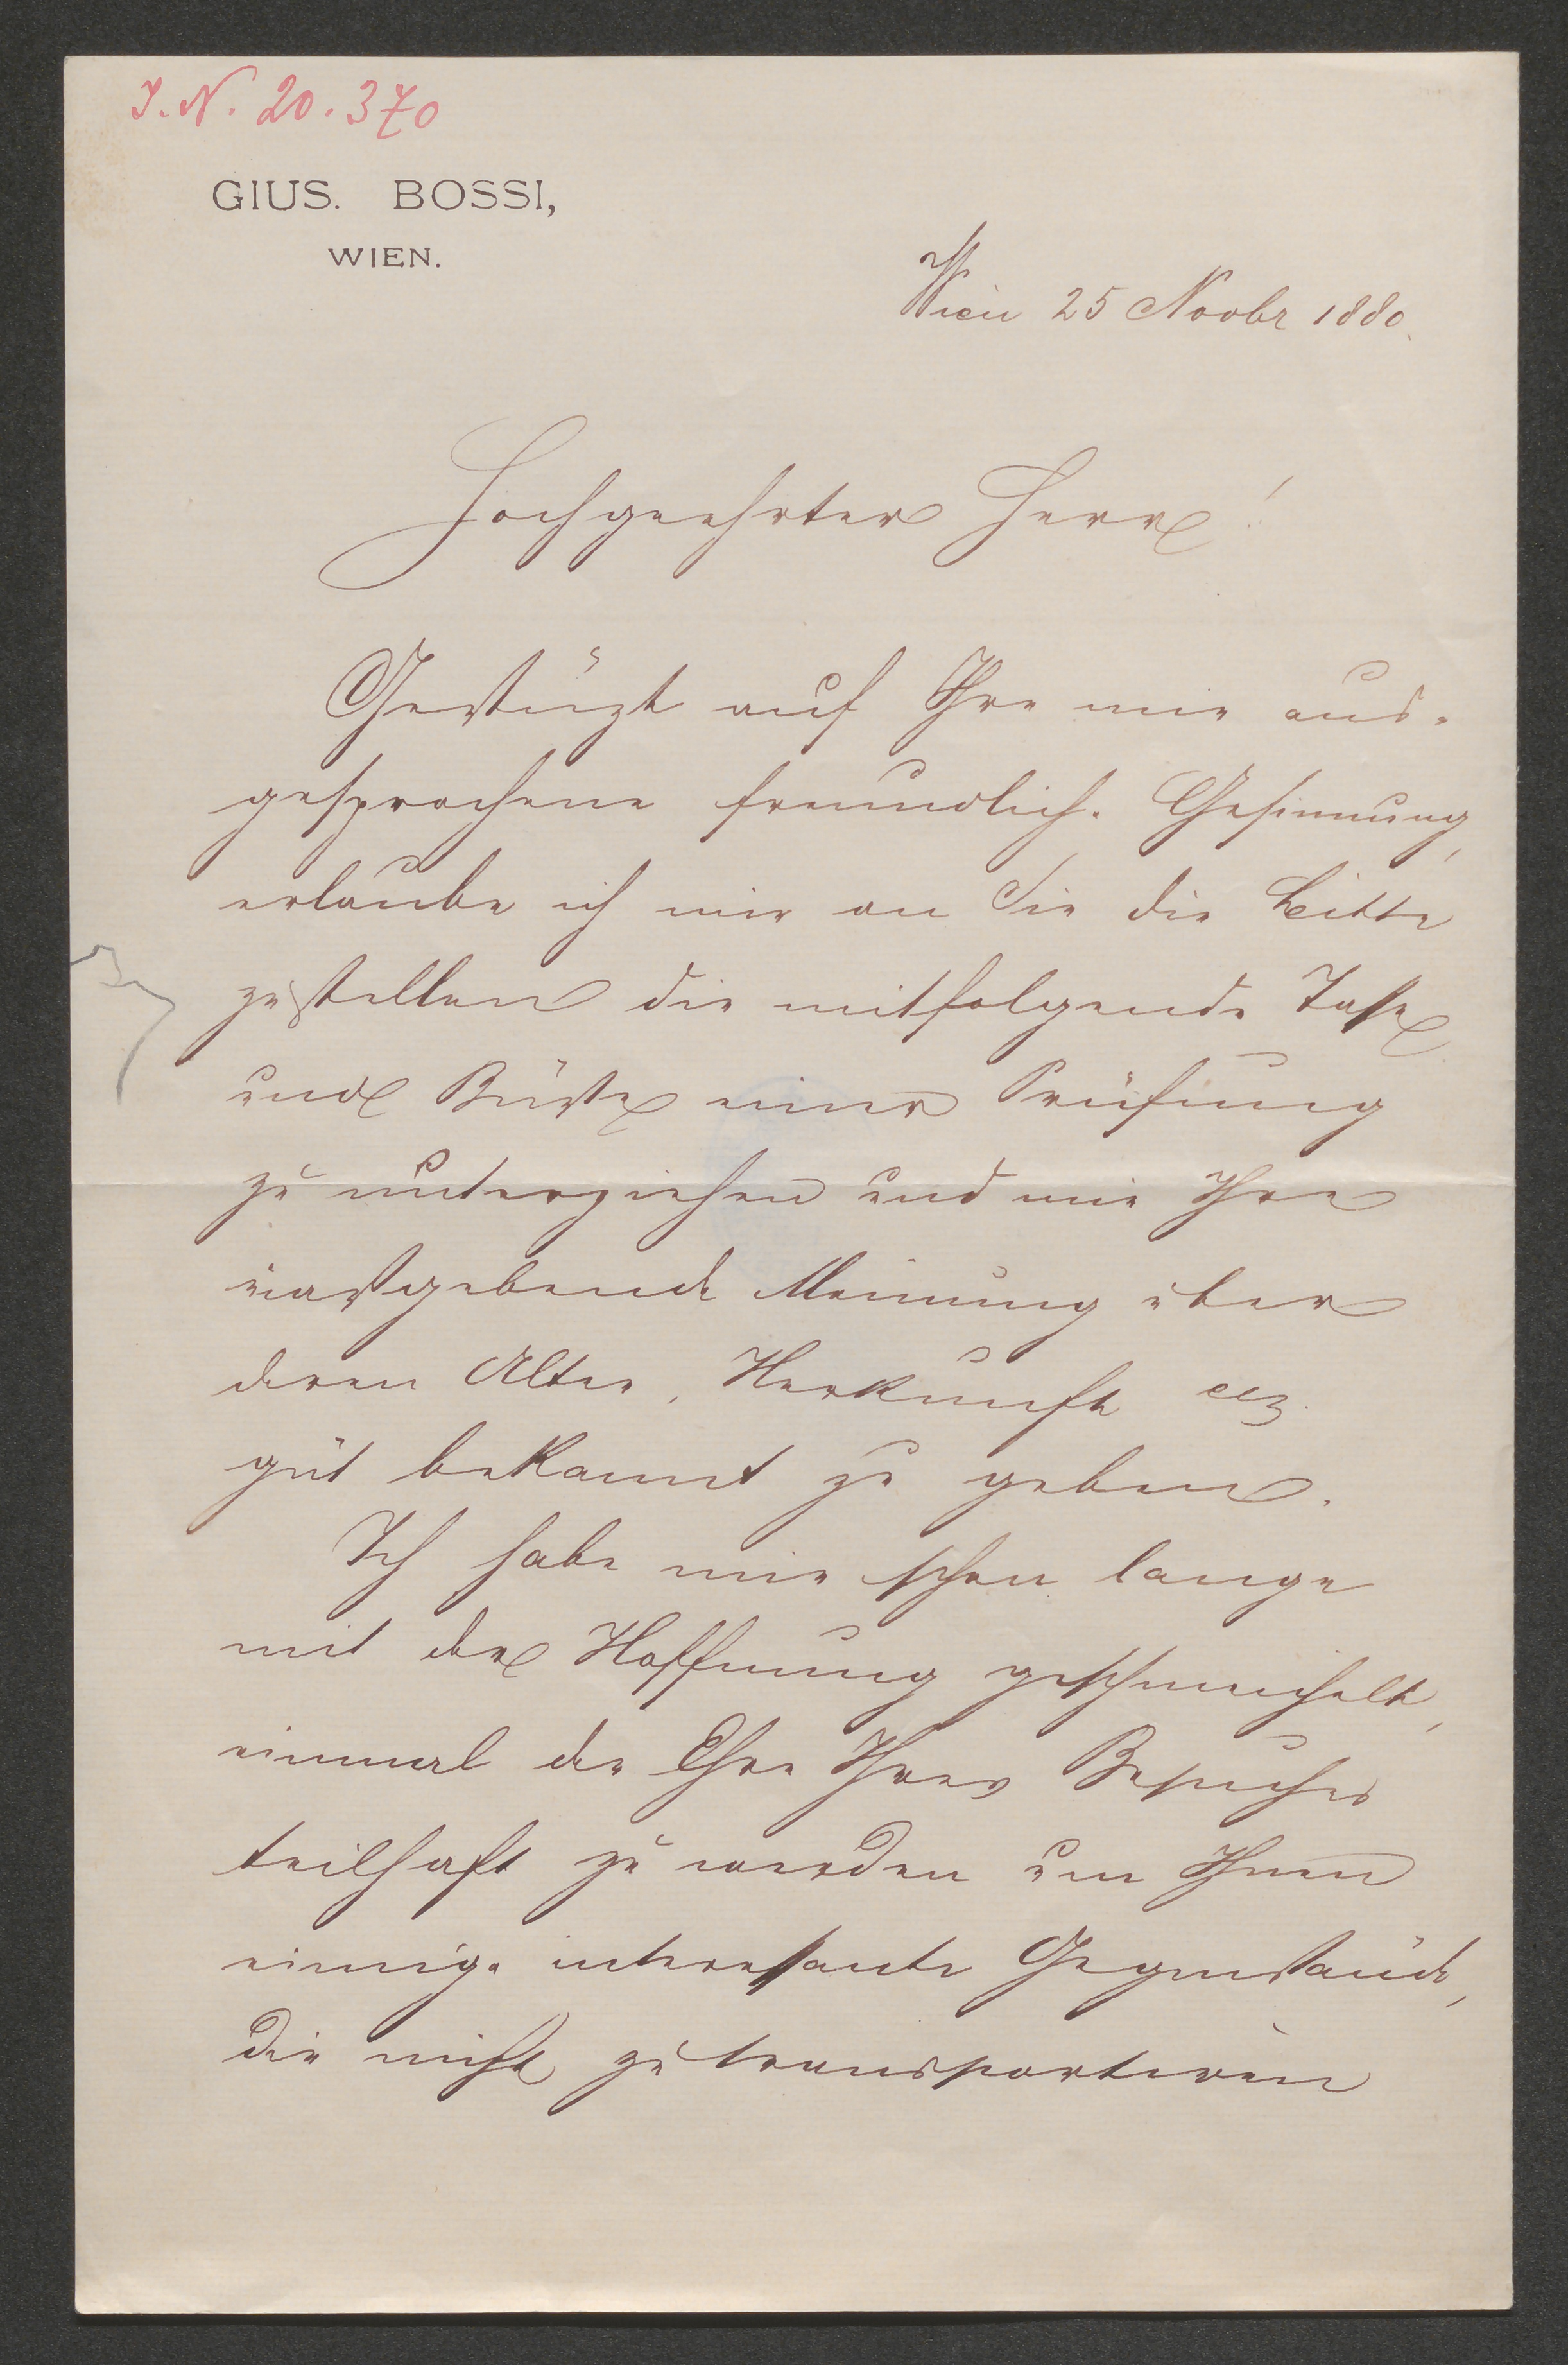 J.N. 20.370
GIUS. BOSSI,
WIEN.
Wien 25 Novbr 1880.
Hochgeehrter Herr!
Gestüzt auf Ihre mir aus-
gesprochene freundlich. Gesinnung,
erlaube ich mir an Sie die Bitte
zu stellen die mitfolgende Tasse
und Büste einer Prüfung
zu unterziehen und mir Ihre
masgebende Meinung über
deren Alter, Herkunft etz.
güt bekannt zu geben.
Ich habe mir schon lange
mit der Hoffnung geschmeichelt,
einmal der Ehre Ihres Besuches
teilhaft zu werden um Ihnen
einnige interessante Gegenstände,
die nicht zu transportiren